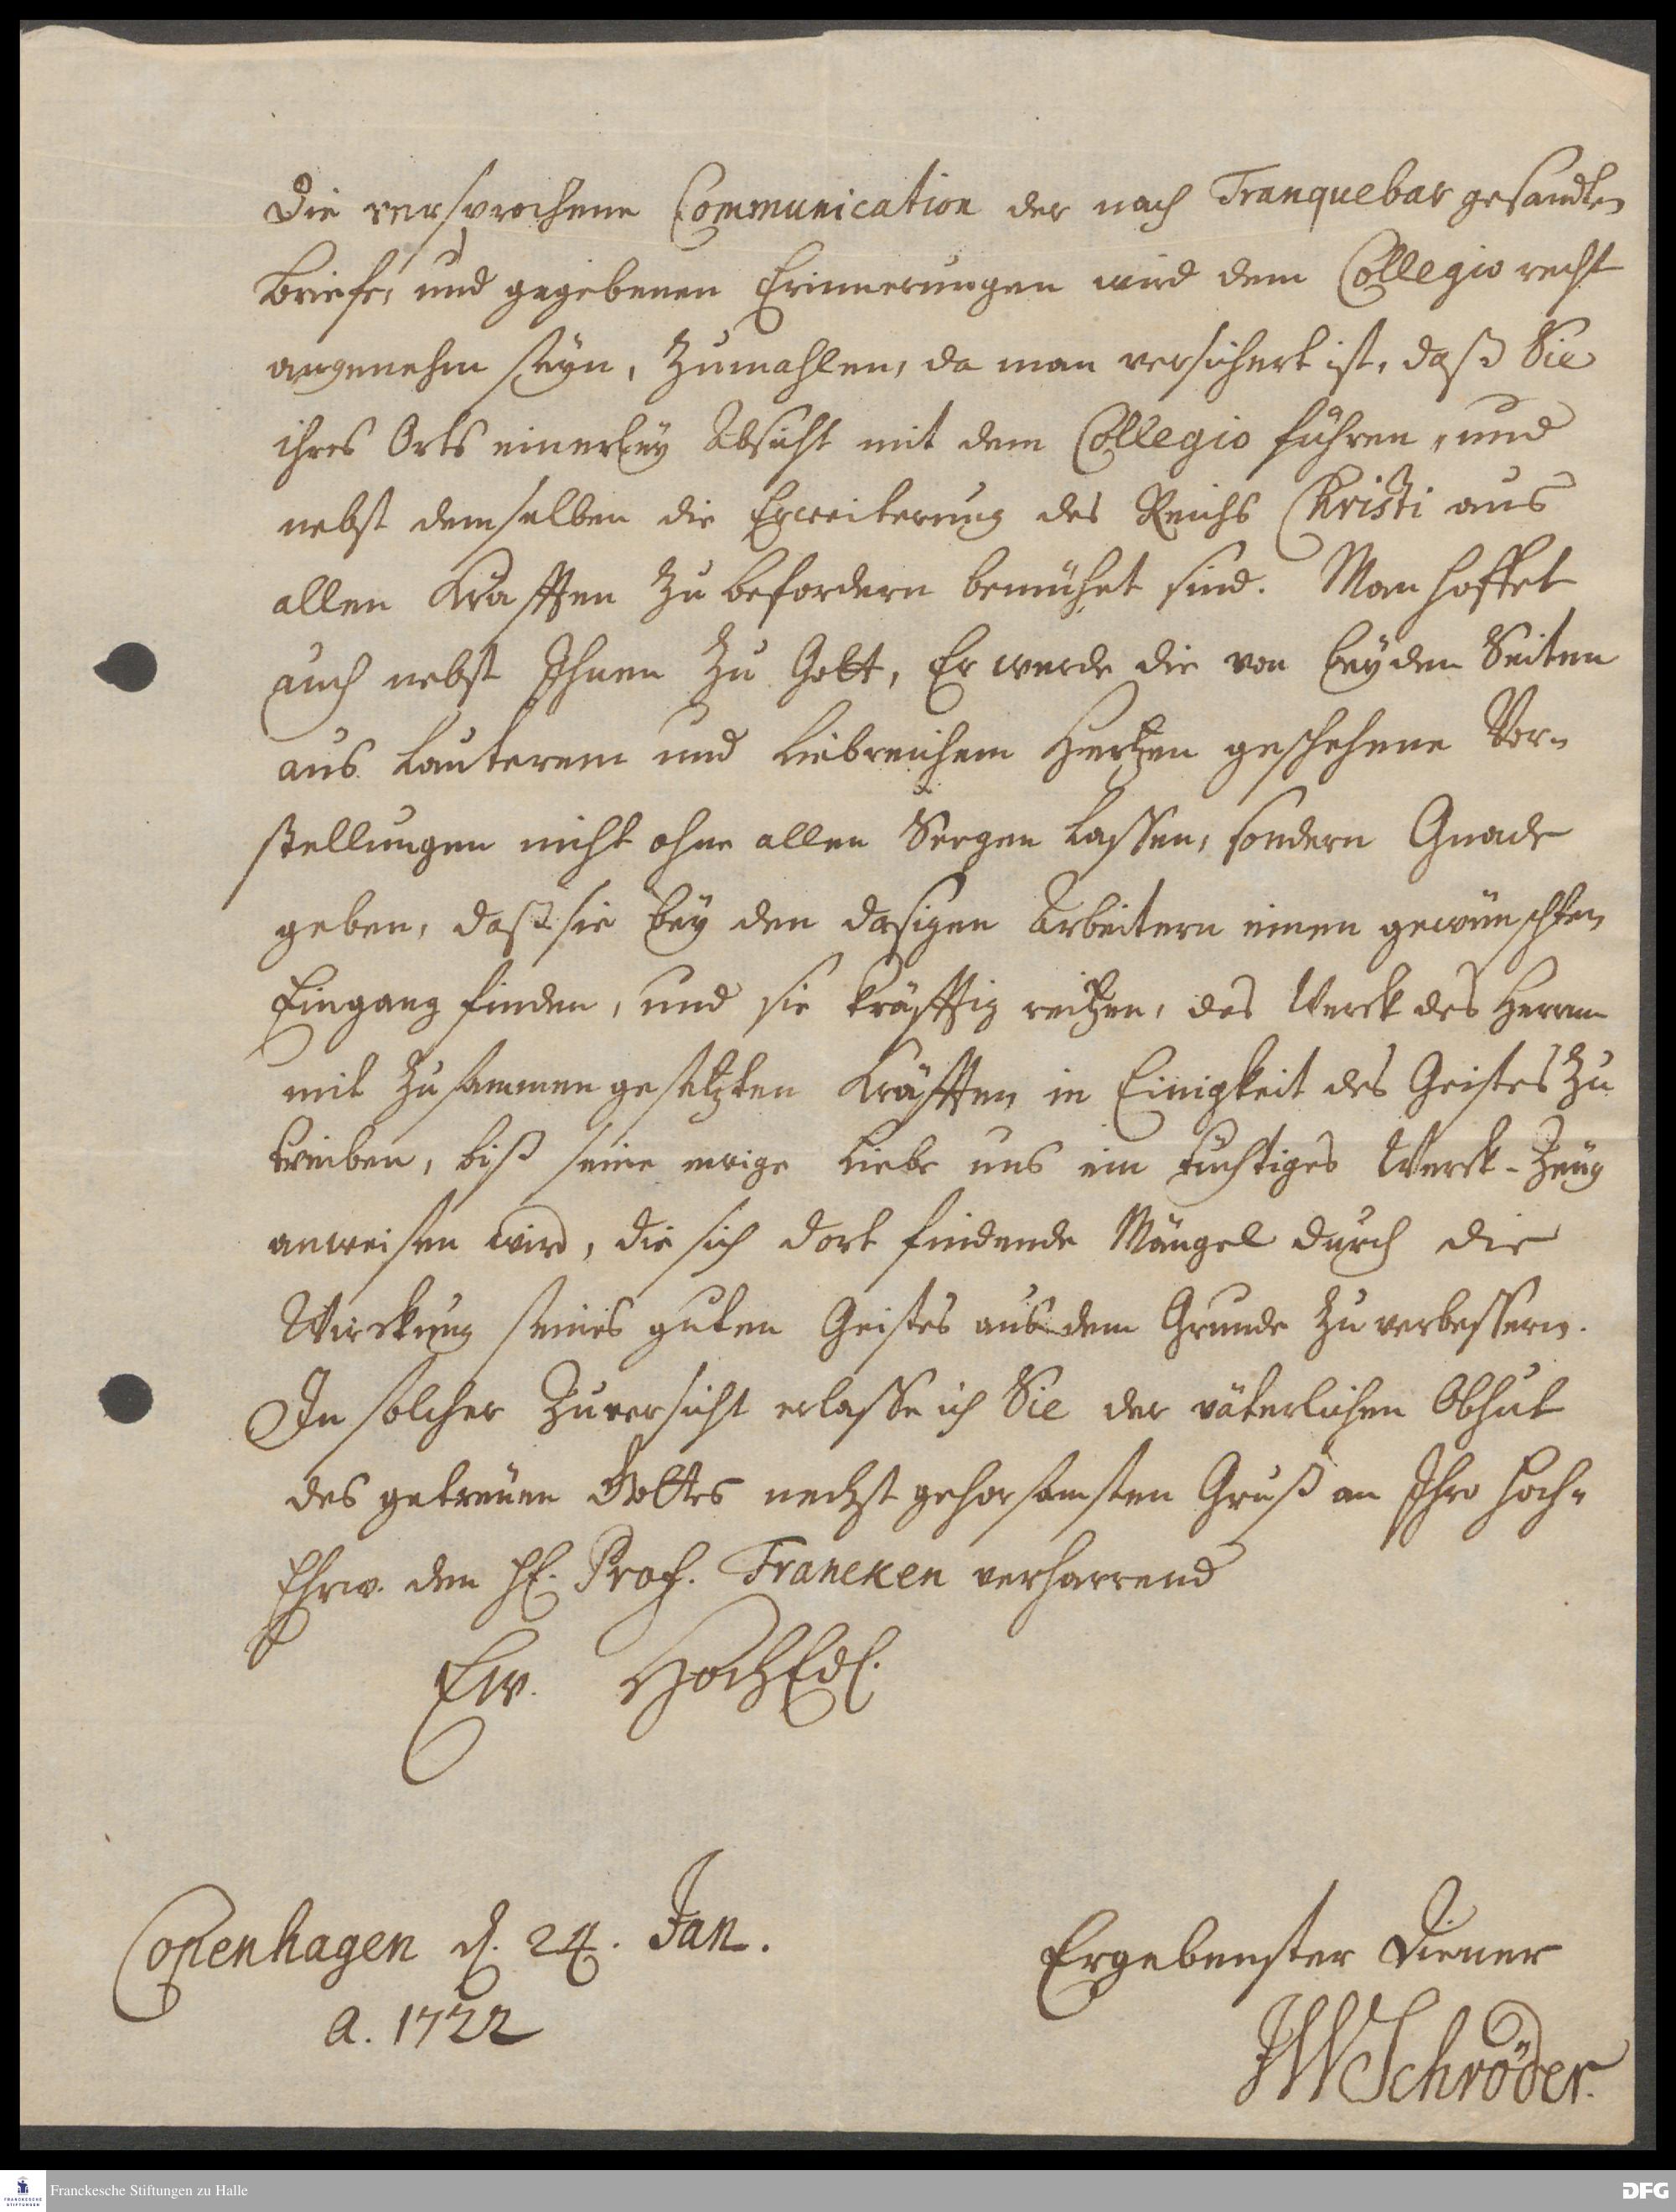 Die versprochene Communication der nach Tranquebar gesandten
Briefe, und gegebenen Erinnerungen wird dem Collegio recht
angenehm seyn, zumahlen, da man versichert ist, daß Sie
ihres Orts einerley Absicht mit dem Collegio führen, und
nebst demselben die Erweiterung des Reichs Christi aus
allen Kräfften zu befordern bemühet sind. Man hoffet
auch nebst Ihnen zu Gott, Er werde die von beyden Seiten
aus lauterem und liebreichem Hertzen geschehene Vor-
stellungen nicht ohne allen Seegen lassen, sondern Gnade
geben, daß sie bey den dasigen Arbeitern einen gewünschten
Eingang finden, und sie kräfftig reitzen, das Werck des Herrn
mit zusammengesetzten Kräfften in Einigkeit des Geistes zu
treiben, biß seine ewige Liebe uns ein tüchtiges Werck-Zeug
anweisen wird, die sich dort findende Mängel durch die
Wirckung seines guten Geistes aus dem Grunde zu verbessern.
In solcher Zuversicht erlasse ich Sie der väterlichen Obhut
des getreuen Gottes nechst gehorsamsten Gruß an Ihro Hoch-
Ehrw. den H. Prof. Francken verharrend
Ew. HochEdl.
Copenhagen d. 24. Jan.
a. 1722
Ergebenster Diener
JWSchröder.
Franckesche Stiftungen zu Halle
FRANCKESCHE STIFTUNGEN
DFG